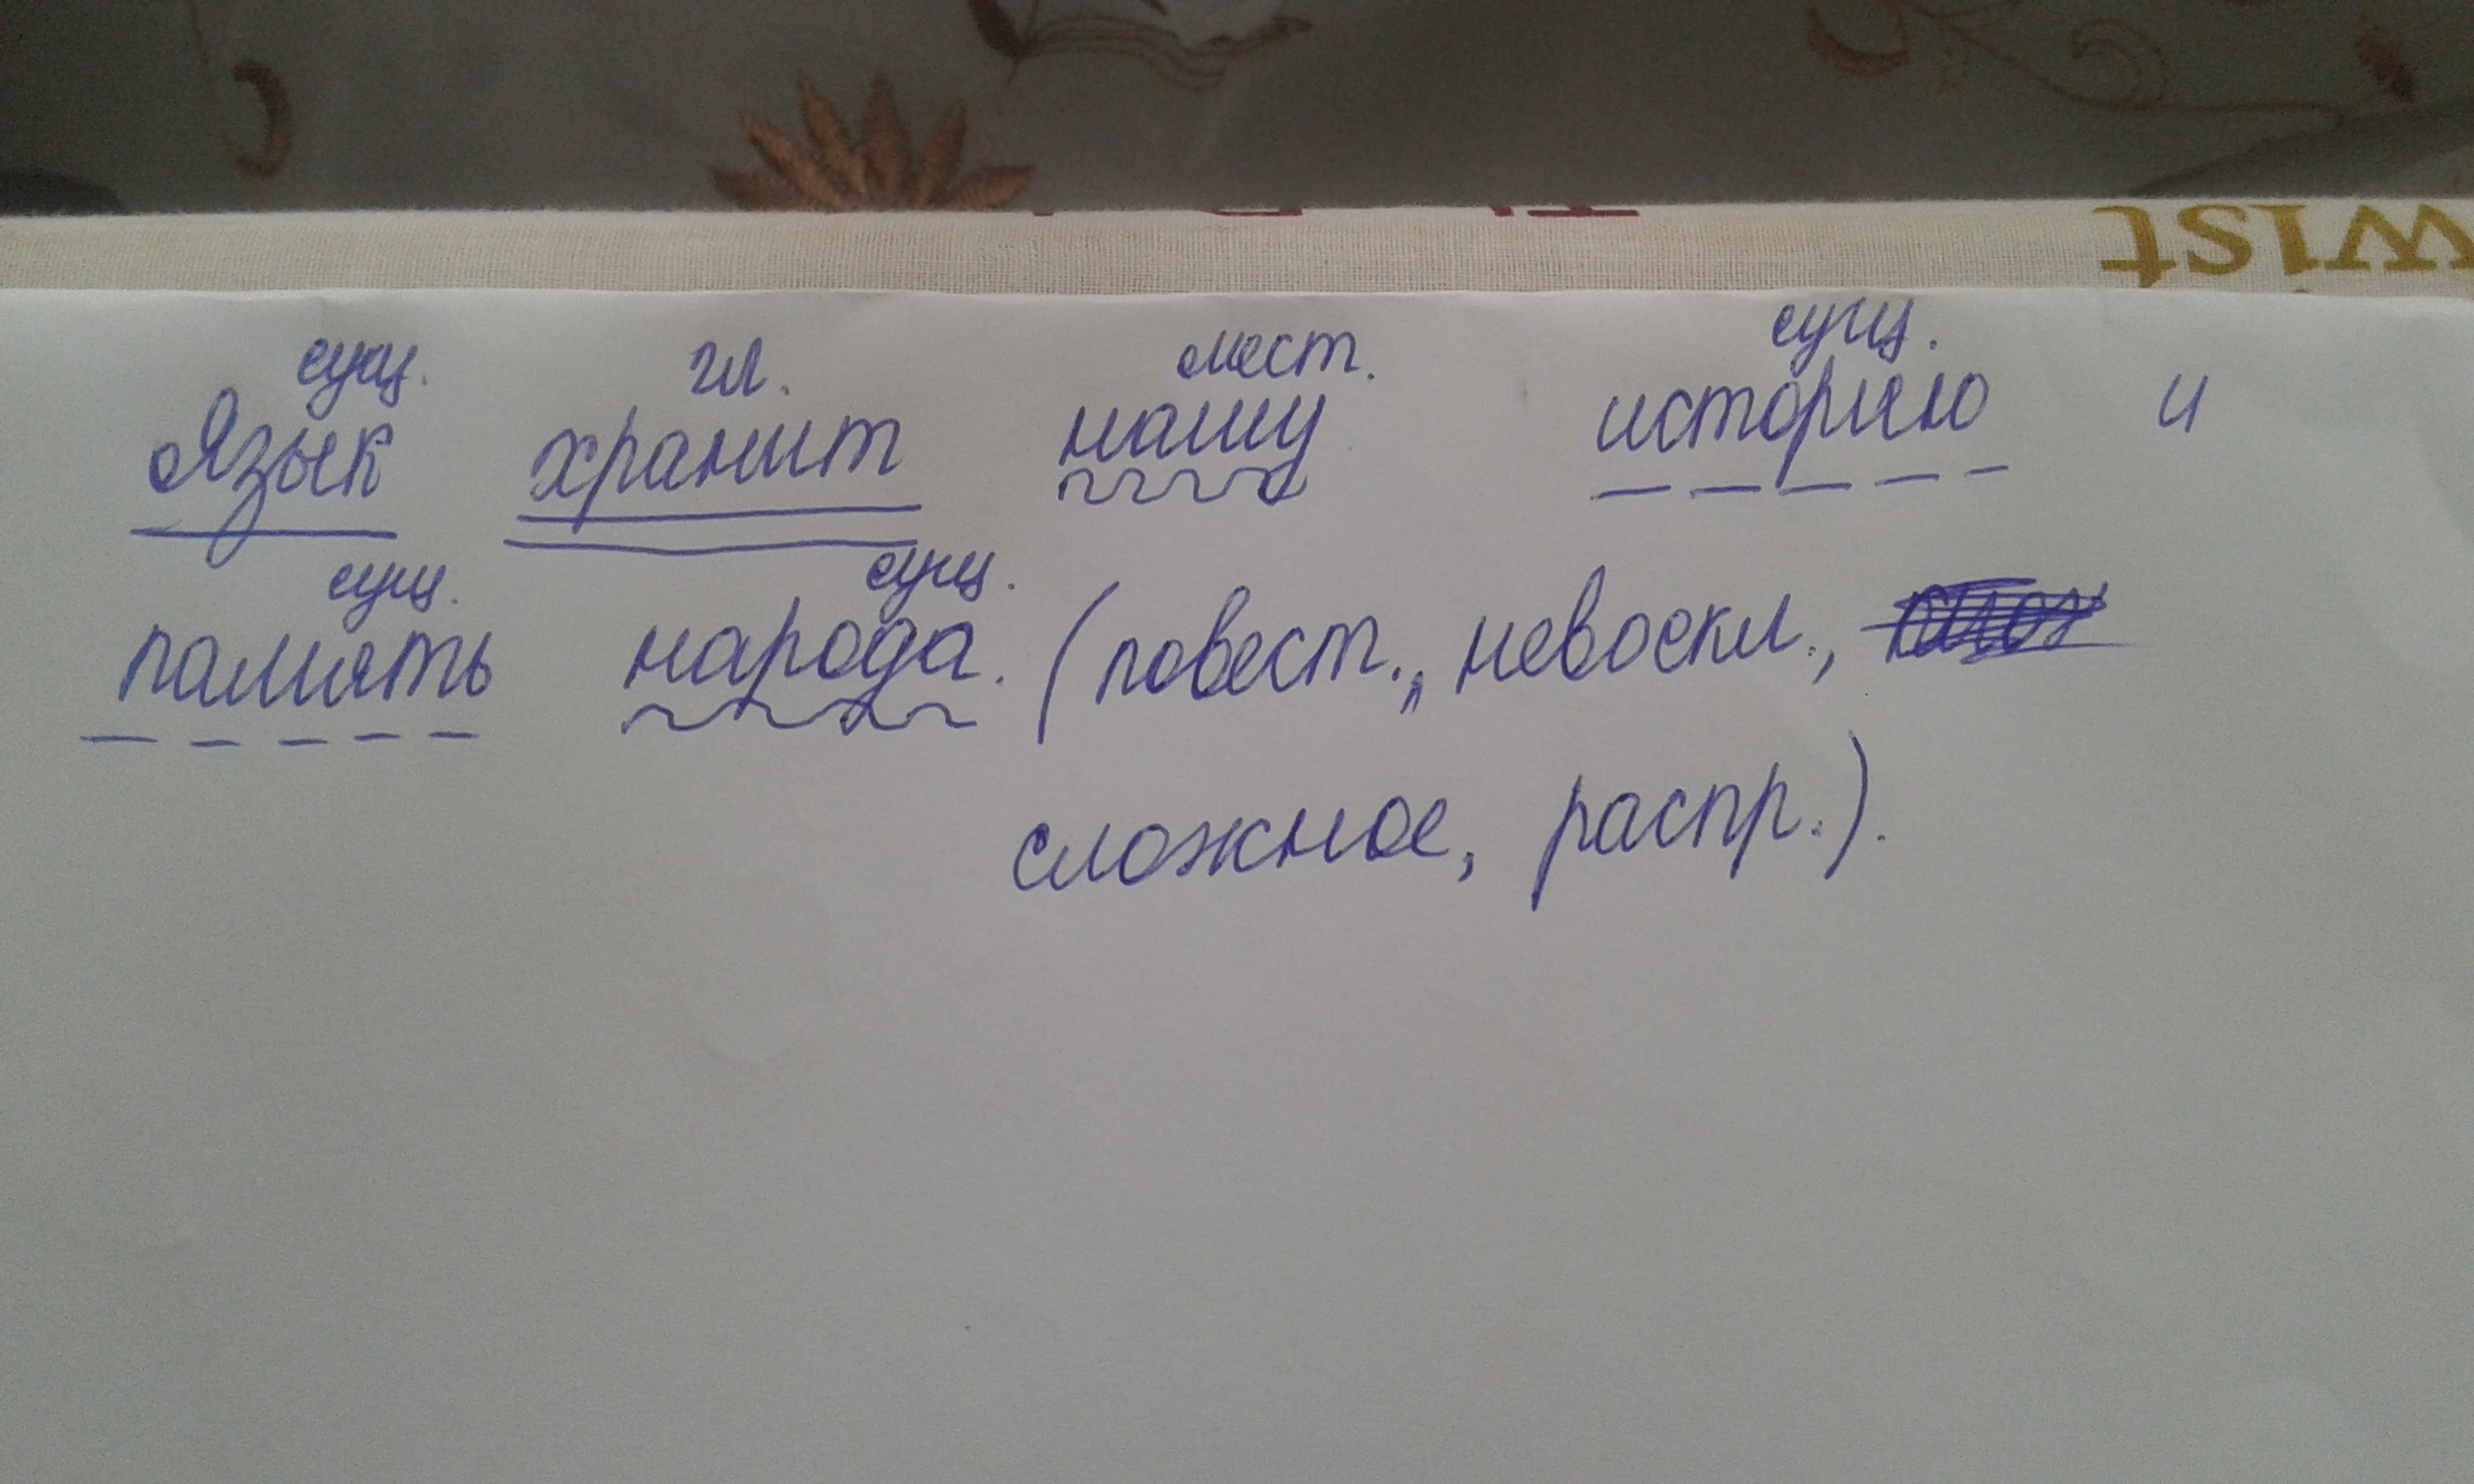 wist
сущ. гл. мест. сущ.
Язык хранит нашу историю и
сущ. сущ.
память народа. (повест., невоскл.,
сложное, распр.).